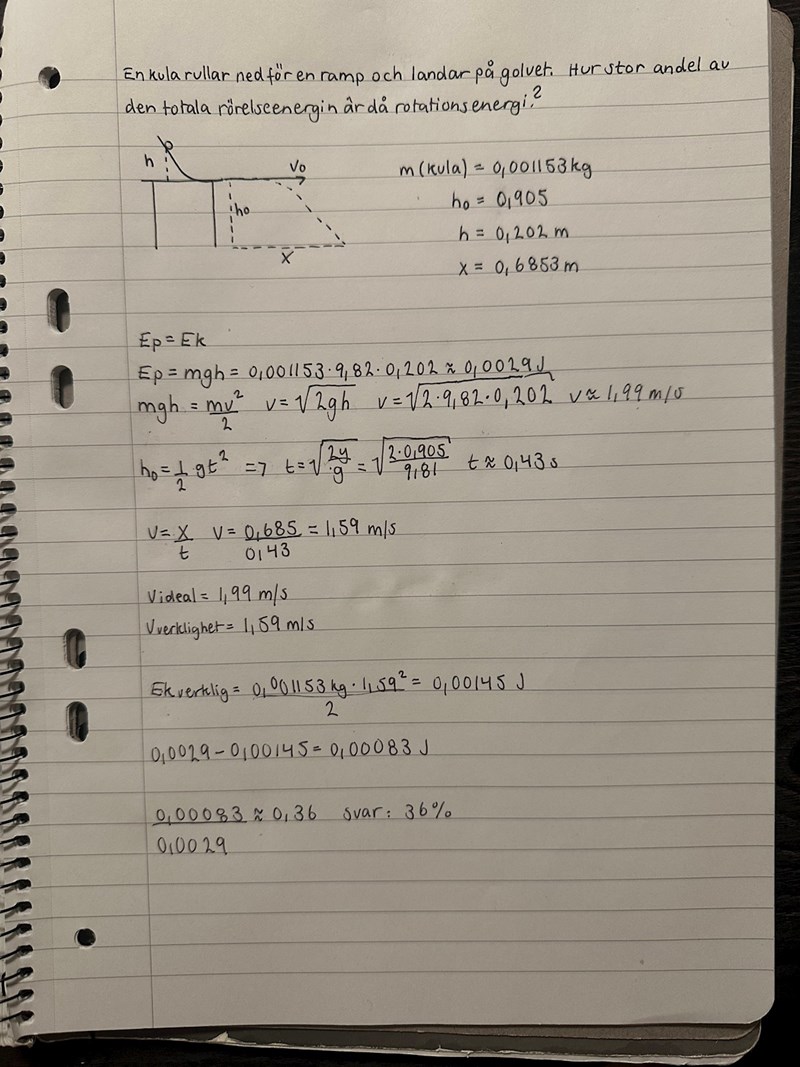 En kula rullar ned för en ramp och landar på golvet. Hur stor andel av
den totala rörelseenergin är då rotationsenergi?
h
V0
h0
x
m(kula) = 0,001153 kg
h0 = 0,905
h = 0,202 m
x = 0,6853 m
Ep = Ek
Ep = mgh = 0,001153 · 9,82 · 0,202 ≈ 0,0029 J
mgh = mv²/2 v = √2gh v = √2·9,82·0,202 v ≈ 1,99 m/s
h0 = 1/2 gt² => t = √2y/g = √2·0,905/9,81 t ≈ 0,43 s
v = x/t v = 0,685/0,43 = 1,59 m/s
Videal = 1,99 m/s
Vverklighet = 1,59 m/s
Ek verklig = 0,001153 kg · 1,59²/2 = 0,00145 J
0,0029 - 0,00145 = 0,00083 J
0,00083/0,0029 ≈ 0,36 svar: 36%